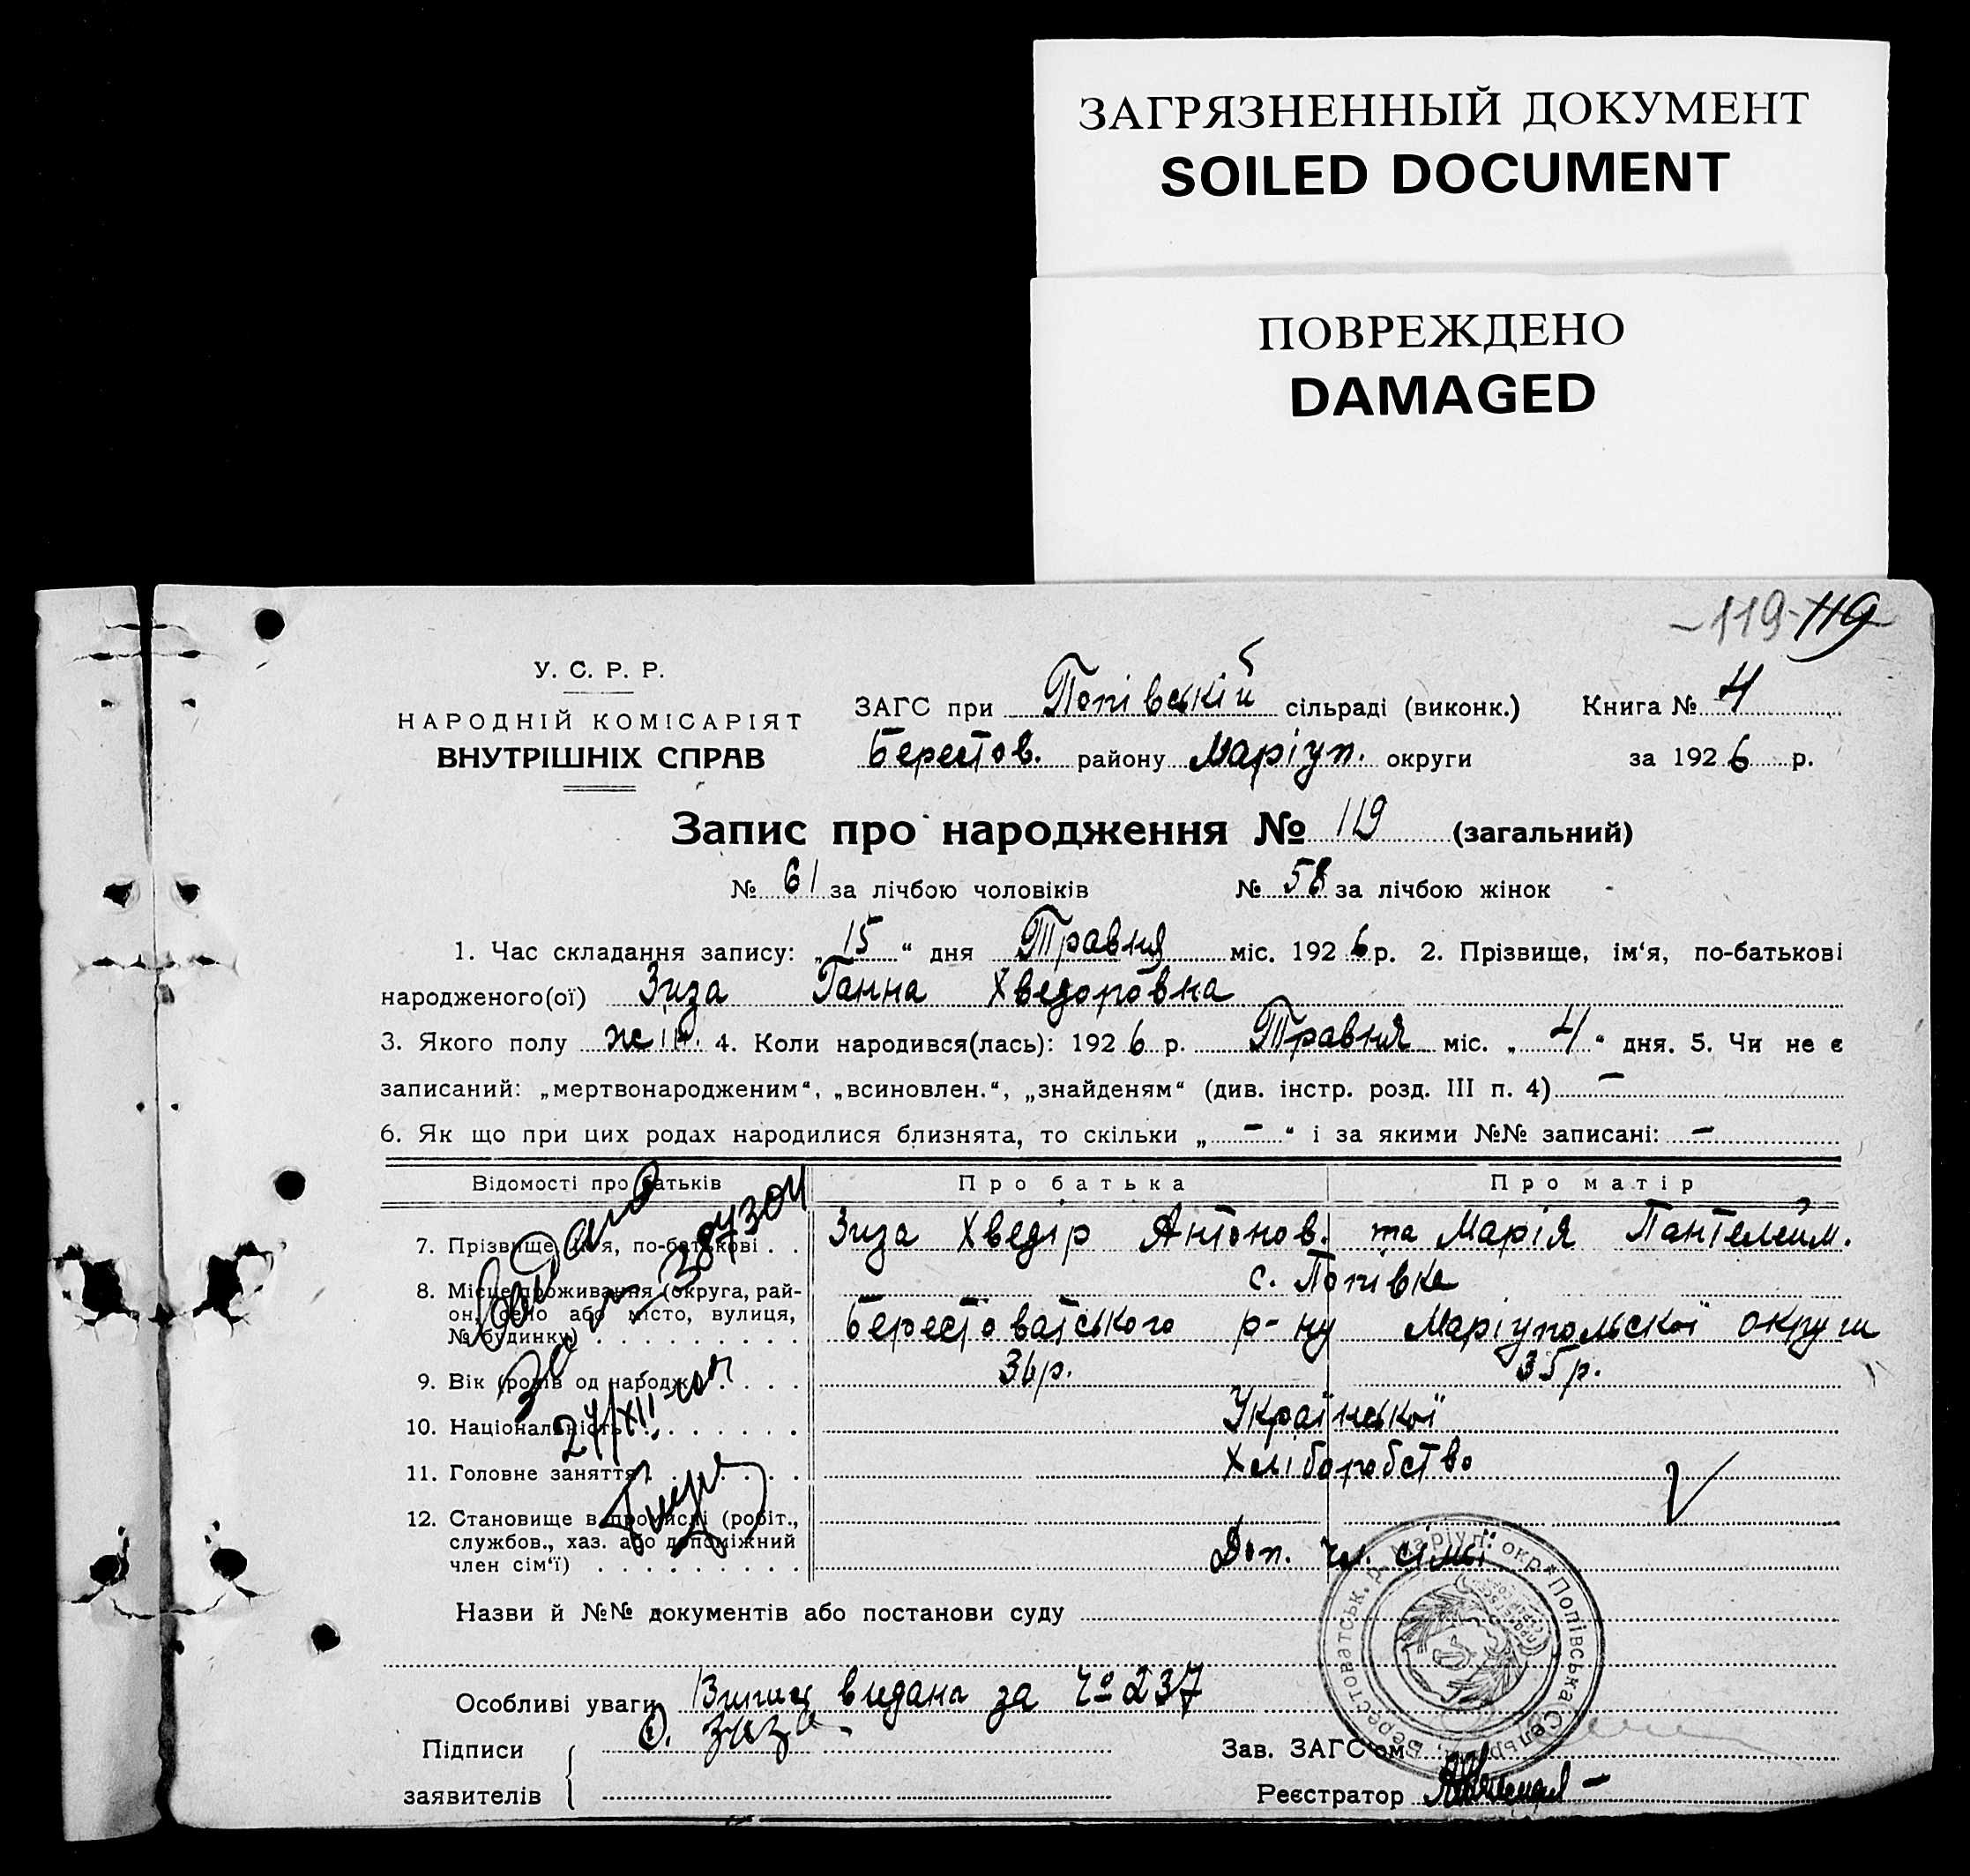 ЗАГРЯЗНЕННЫЙ ДОКУМЕНТ
SOILED DOCUMENT
ПОВРЕЖДЕНО
DAMAGED
-119- 119
У. С. Р. Р.
НАРОДНІЙ КОМІСАРІЯТ
ВНУТРІШНІХ СПРАВ
ЗАГС при Попівській сільраді (виконк.) Книга № 4
Берестов. району Маріуп. округи за 1926 р.
Запис про народження № 119 (загальний)
№ 61 за лічбою чоловіків № 58 за лічбою жінок
1. Час складання запису: „15“ дня Травня міс. 1926 р. 2. Прізвище, ім‘я, по-батькові
народженого(ої) Зиза Ганна Хведоровна
3. Якого полу жін. 4. Коли народився(лась): 1926 р. Травня міс. „4“ дня. 5. Чи не є
записаний: „мертвонародженим“, „всиновлен.“, „знайденям“ (див. інстр. розд. III п. 4) —
6. Як що при цих родах народилися близнята, то скільки „—“ і за якими №№ записані: —
Відомості про батьків Про батька Про матір
7. Прізвище, ім‘я, по-батькові . . Зиза Хведір Антонов. та Марія Пантелейм.
8. Місце проживання (округа, рай- с. Попівка
он, село або місто, вулиця,
№ будинку) Берестоватського р-ну Маріупольскої округи
9. Вік (років од народж.) 36р. 35р.
10. Національність Української
11. Головне заняття Хліборобство
12. Становище в промислі (робіт.,
службов., хаз. або допоміжний
член сім‘ї) Доп. чл. сімї
24/XII
Назви й №№ документів або постанови суду
Особливі уваги Випис видана за № 237
Підписи
заявителів
Зиза
Зав. ЗАГС‘ом
Реєстратор
Берестоватськ. р. Маріуп. окр. Попівська Сельрада